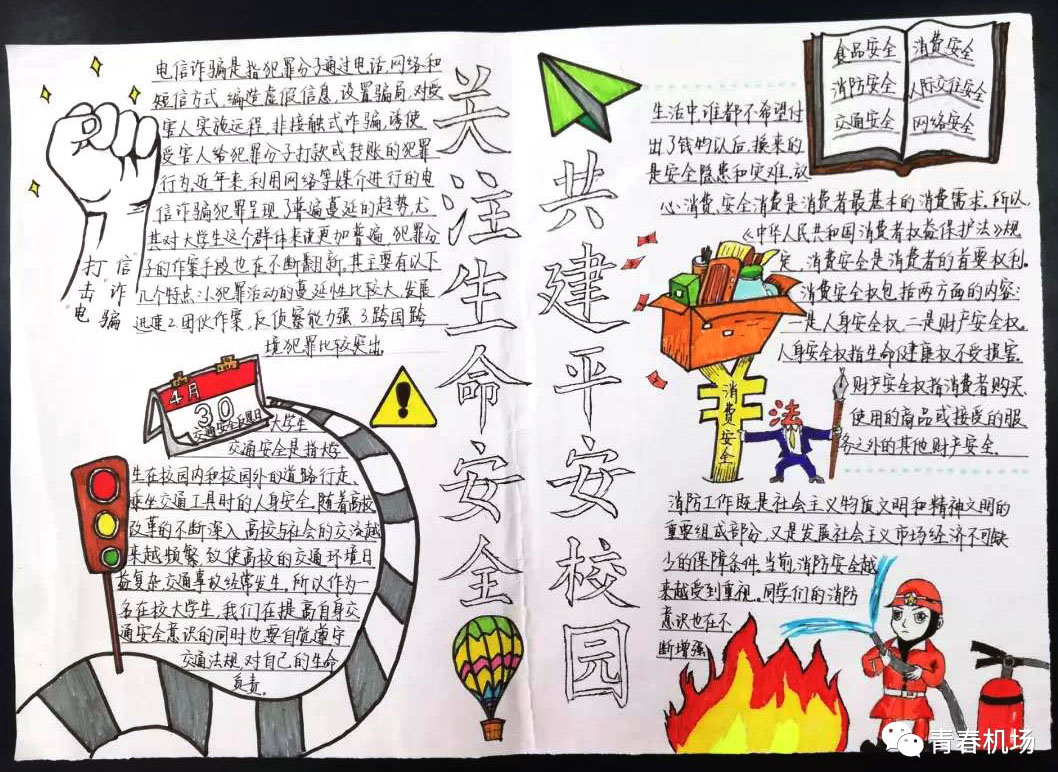 电信诈骗是指犯罪分子通过电话、网络和
短信方式,编造虚假信息,设置骗局,对受
害人实施远程、非接触式诈骗,诱使
受害人给犯罪分子打款或转账的犯罪
行为,近年来,利用网络等媒介进行的电
信诈骗犯罪呈现了普遍蔓延的趋势,尤
其对大学生这个群体来说更加普遍,犯罪分
子的作案手段也在不断翻新,其主要有以下
几个特点:1.犯罪活动的蔓延性比较大,发展
迅速2.团伙作案,反侦察能力强 3.跨国跨
境犯罪比较突出。
打击“电信”诈骗
4月
30
交通安全反思日
大学生
交通安全是指大学
生在校园内和校园外的道路行走、
乘坐交通工具时的人身安全。随着高校
改革的不断深入,高校与社会的交流越
来越频繁,致使高校的交通环境日
益复杂,交通事故经常发生。所以作为一
名在校大学生,我们在提高自身交
通安全意识的同时也要自觉遵守
交通法规,对自己的生命
负责。
关注生命安全
共建平安校园
食品安全
消防安全
交通安全
消费安全
人际交往安全
网络安全
生活中,谁都不希望付
出了钱物以后,换来的
是安全隐患和灾难。放
心消费、安全消费是消费者最基本的消费需求。所以,
《中华人民共和国消费者权益保护法》规
定,消费安全是消费者的首要权利。
消费安全权包括两方面的内容:
一是人身安全权,二是财产安全权。
人身安全权指生命健康权不受损害。
财产安全权指消费者购买、
使用的商品或接受的服
务之外的其他财产安全。
消费安全
法
消防工作既是社会主义物质文明和精神文明的
重要组成部分,又是发展社会主义市场经济不可缺
少的保障条件。当前,消防安全越
来越受到重视。同学们的消防
意识也在不
断增强
青春机场